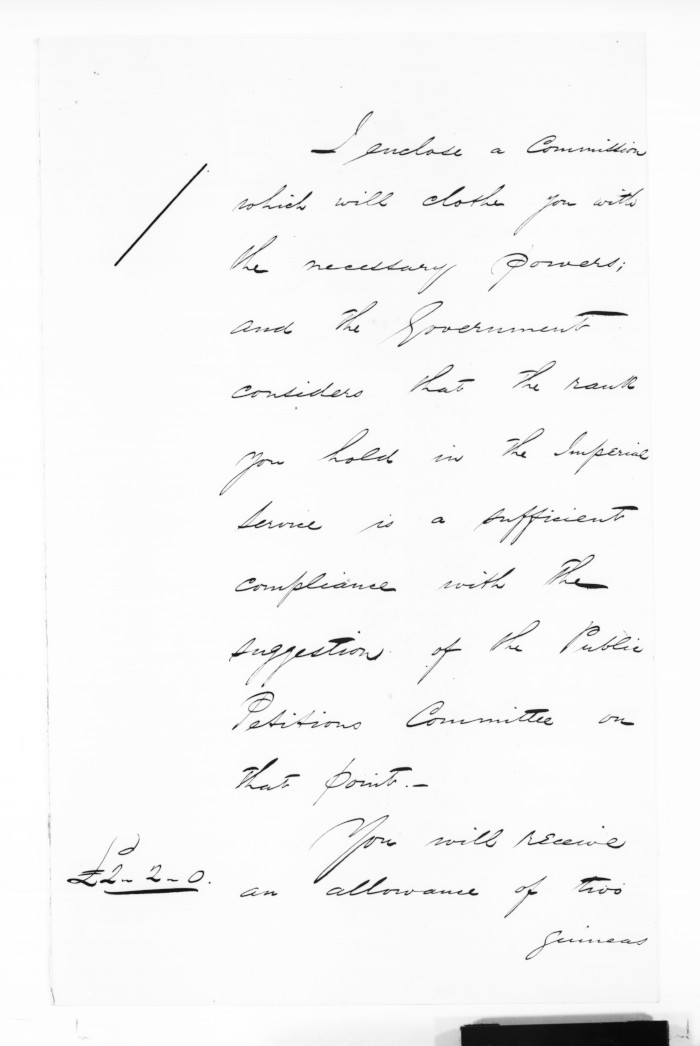 I enclose a Commission
which will clothe you with
the necessary powers;
and the Government
considers that the rank
you hold in the Imperial
Service is a sufficient
compliance with the
suggestion of the Public
Petitions Committee on
that point.—
You will receive
£2-2-0. an allowance of two
guineas